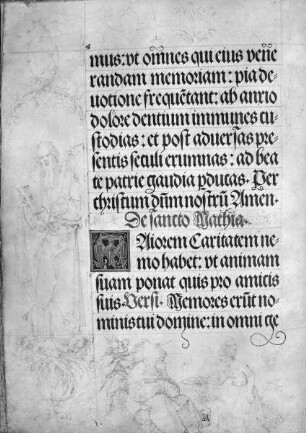 mus: vt om̄nes qui eius vene
randam memoriam: pia de
uotione frequētant: ab anxio
dolore dentium immunes cu
stodias: et post aduersas pre
sentis seculi erumnas: ad bea
te patrie gaudia ꝑducas. Per
christum dn̄m nostrū Amen.
De sancto Mathia.
Maiorem Caritatem ne
mo habet: vt animam
suam ponat quis pro amicis
suis Versi. Memores erūt no
minis tui domine: in omni ge